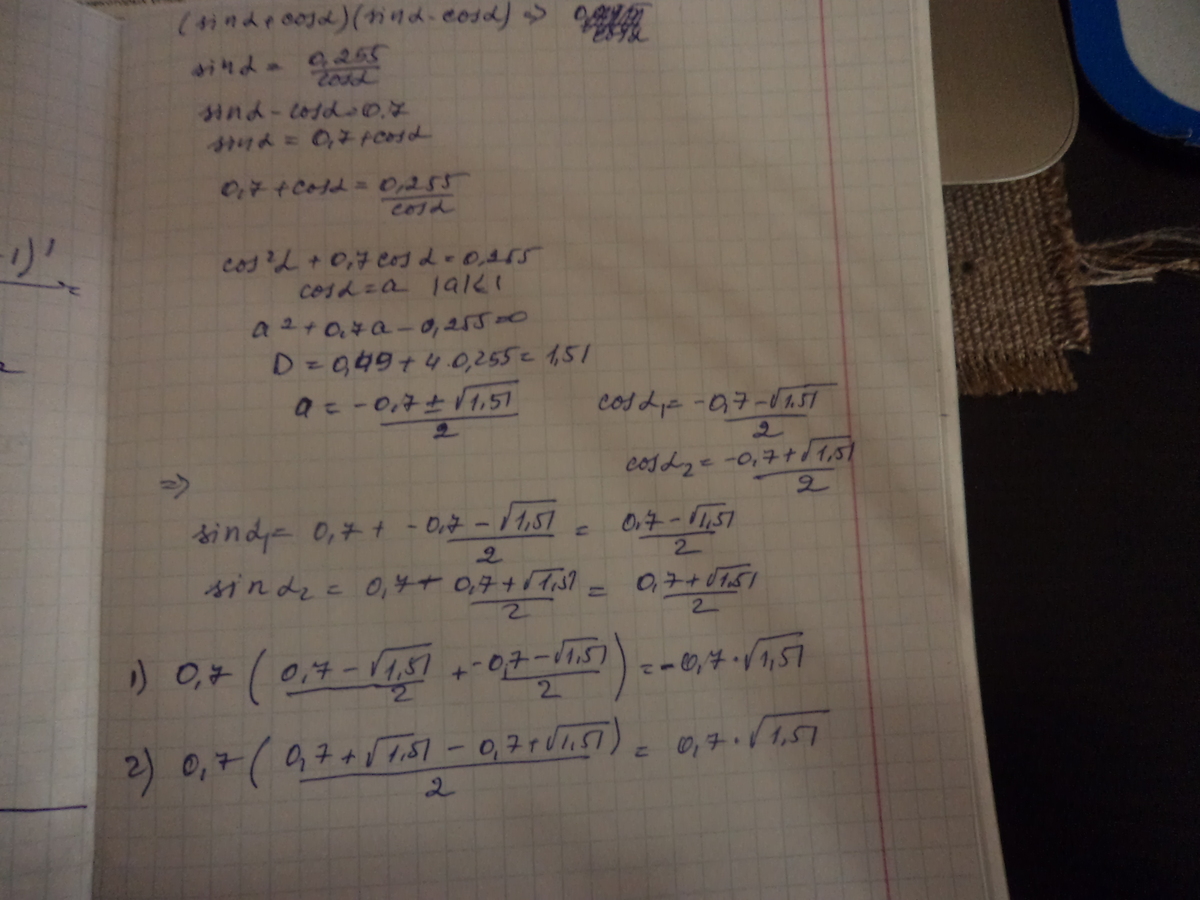 (sinα+cosα)(sinα-cosα) =>
sinα = 0,255/cosα
sinα - cosα = 0.7
sinα = 0,7 + cosα
0,7 + cosα = 0,255/cosα
-1)'
cos²α + 0,7 cosα = 0,255
cosα = a |a|<1
a² + 0,7a - 0,255 = 0
D = 0,49 + 4·0,255 = 1,51
a = -0,7 ± √1,51 / 2 cosα₁ = -0,7 - √1,51 / 2
cosα₂ = -0,7 + √1,51 / 2
=>
sinα₁ = 0,7 + -0,7 - √1,51 / 2 = 0,7 - √1,51 / 2
sinα₂ = 0,7 + 0,7 + √1,51 / 2 = 0,7 + √1,51 / 2
1) 0,7 ( 0,7 - √1,51 / 2 + -0,7 - √1,51 / 2 ) = -0,7·√1,51
2) 0,7 ( 0,7 + √1,51 - 0,7 + √1,51 / 2 ) = 0,7·√1,51